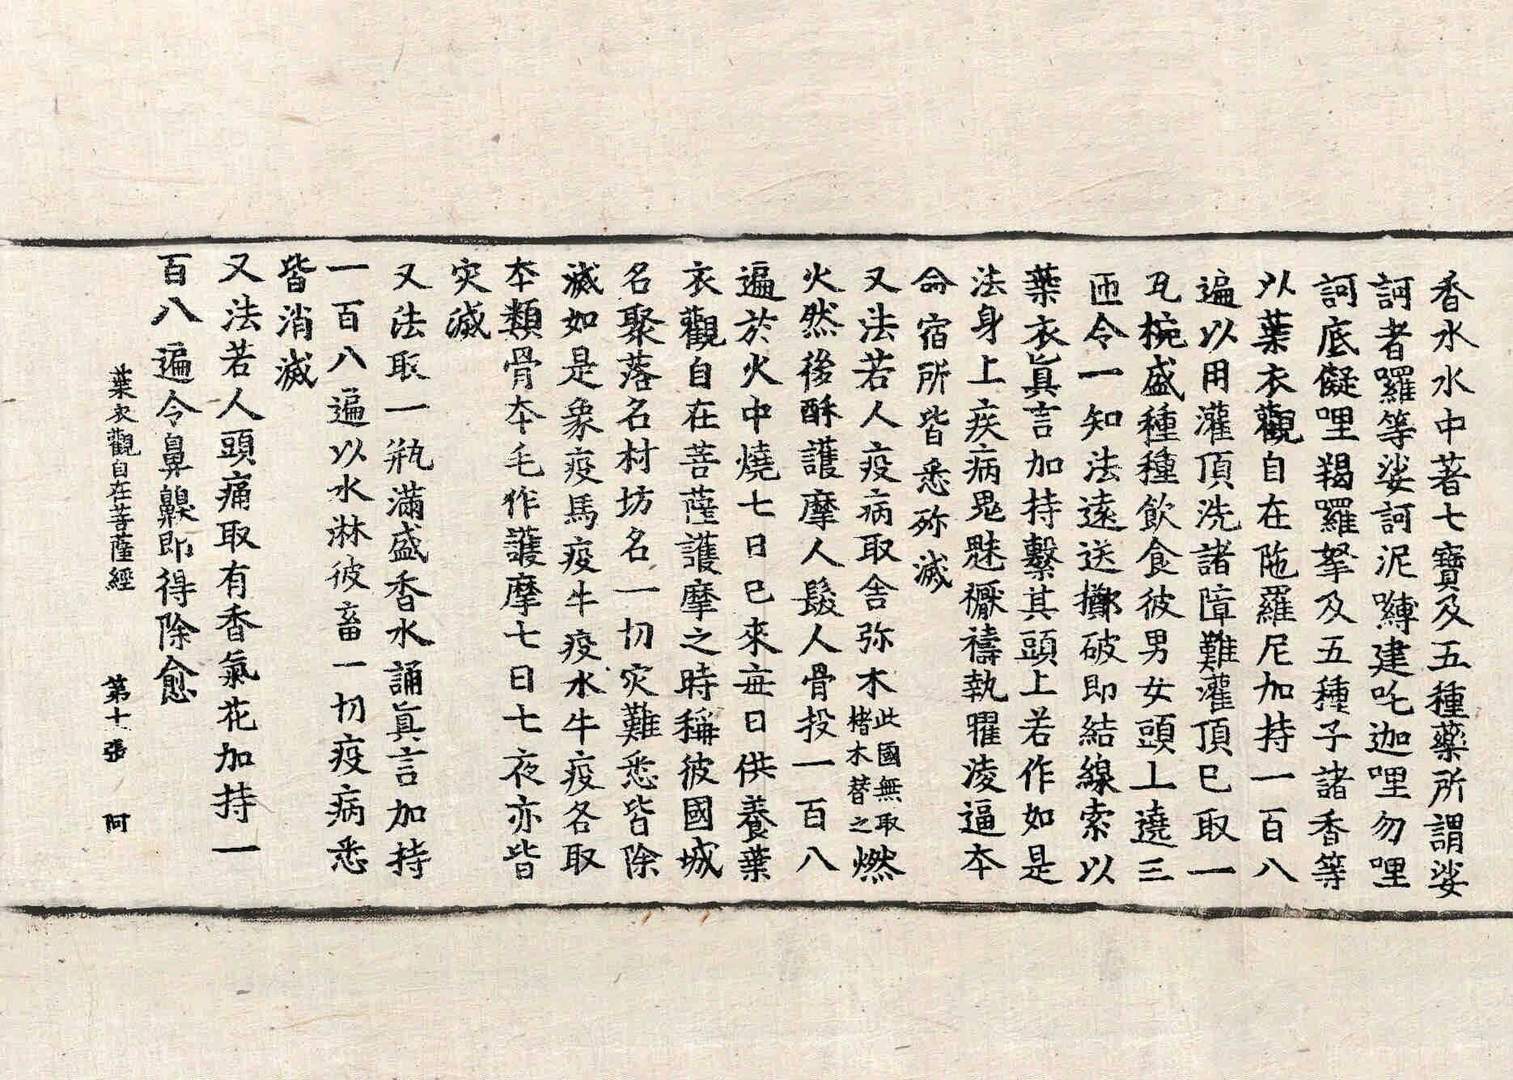 香水水中著七寶及五種藥所謂娑
訶者囉等娑訶泥嚩建吒迦哩勿哩
訶底儗哩羯羅拏及五種子諸香等
以葉衣觀自在陁羅尼加持一百八
遍以用灌頂洗諸障難灌頂已取一
瓦椀盛種種飲食彼男女頭上遶三
匝令一知法遠送擲破即結線索以
葉衣眞言加持繫其頭上若作如是
法身上疾病鬼魅禱執曜淩逼本
命宿所皆悉殄滅
又法若人疫病取舍弥木此國無取楮木替之燃
火然後酥護摩人髮人骨投一百八
遍於火中燒七日已來每日供養葉
衣觀自在菩薩護摩之時稱彼國城
名聚落名村坊名一切灾難悉皆除
滅如是象疫馬疫牛疫水牛疫各取
本類骨本毛作護摩七日七夜亦皆
灾滅
又法取一瓶滿盛香水誦眞言加持
一百八遍以水淋彼畜一切疫病悉
皆消滅
又法若人頭痛取有香氣花加持一
百八遍令鼻齅即得除愈
葉衣觀自在菩薩經 第十張 阿